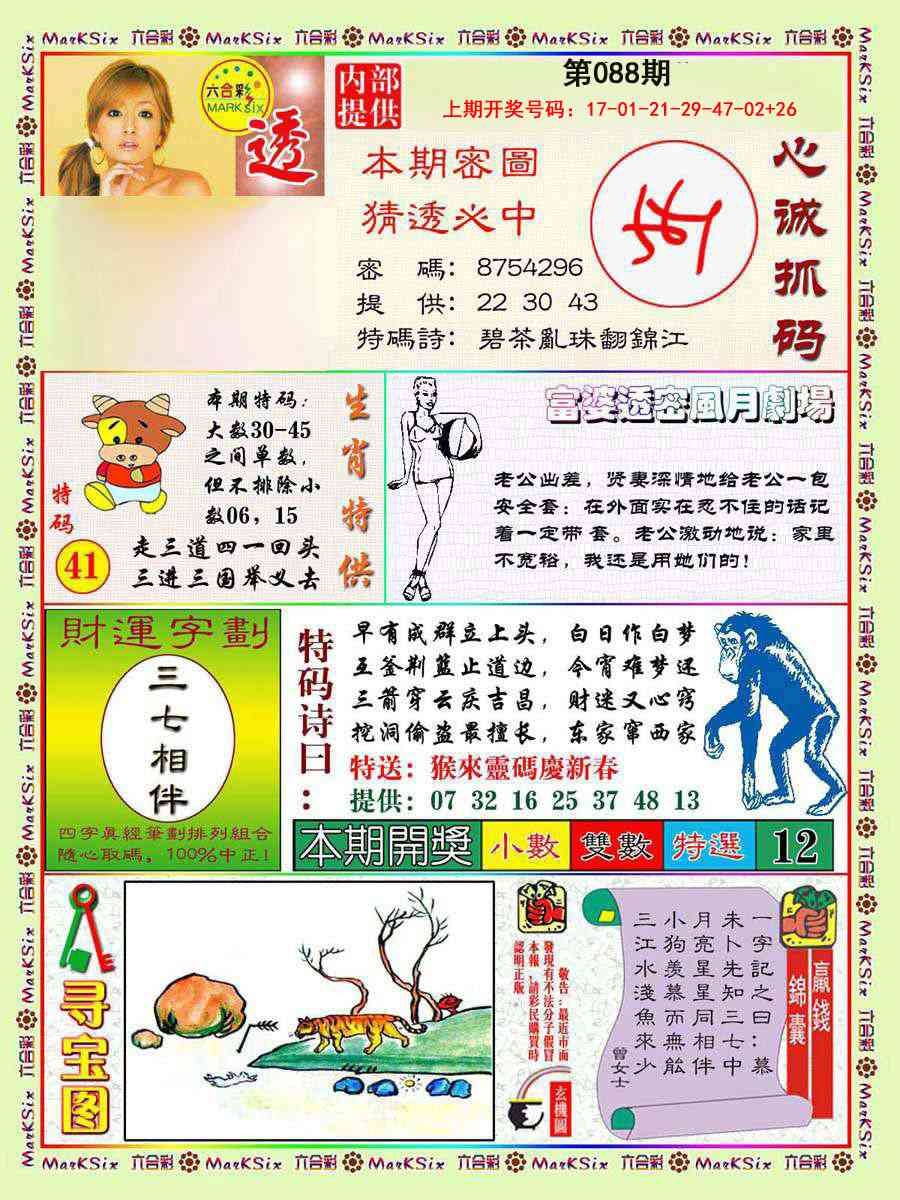 MarKSix 六合彩 MarKSix 六合彩 MarKSix 六合彩 MarKSix 六合彩 MarKSix 六合彩
六合彩
MARK six
透
内部
提供
第088期
上期开奖号码：17-01-21-29-47-02+26
本期密圖
猜透必中
密 碼：8754296
提 供：22 30 43
特碼詩：碧茶亂珠翻錦江
心诚抓码
本期特码：
大数30-45
之间单数，
但不排除小
数06，15
生肖特供
特码
41
走三道四一回头
三进三国举义去
富婆透密風月劇場
老公出差，贤妻深情地给老公一包
安全套：在外面实在忍不住的话记
着一定带 套。老公激动地说：家里
不宽裕，我还是用她们的！
財運字劃
三七相伴
四字真經筆劃排列組合
隨心取碼，100%中正！
特码诗曰：
早有成群立上头，白日作白梦
五釜荆蓝止道边，今宵难梦还
三箭穿云庆吉昌，财迷又心窍
挖洞偷盗最擅长，东家窜西家
特送：猴來靈碼慶新春
提供：07 32 16 25 37 48 13
本期開獎 小數 雙數 特選 12
寻宝图
敬告：最近市面
發現有不法分子假冒
本報，請彩民購買時
認明正版。
玄機圖
一字記之曰：慕
朱卜先知三七中
月亮星星同相伴
小狗羨慕而無能
三江水淺魚來少
曾女士
贏錢
錦囊
MarKSix 六合彩 MarKSix 六合彩 MarKSix 六合彩 MarKSix 六合彩 MarKSix 六合彩